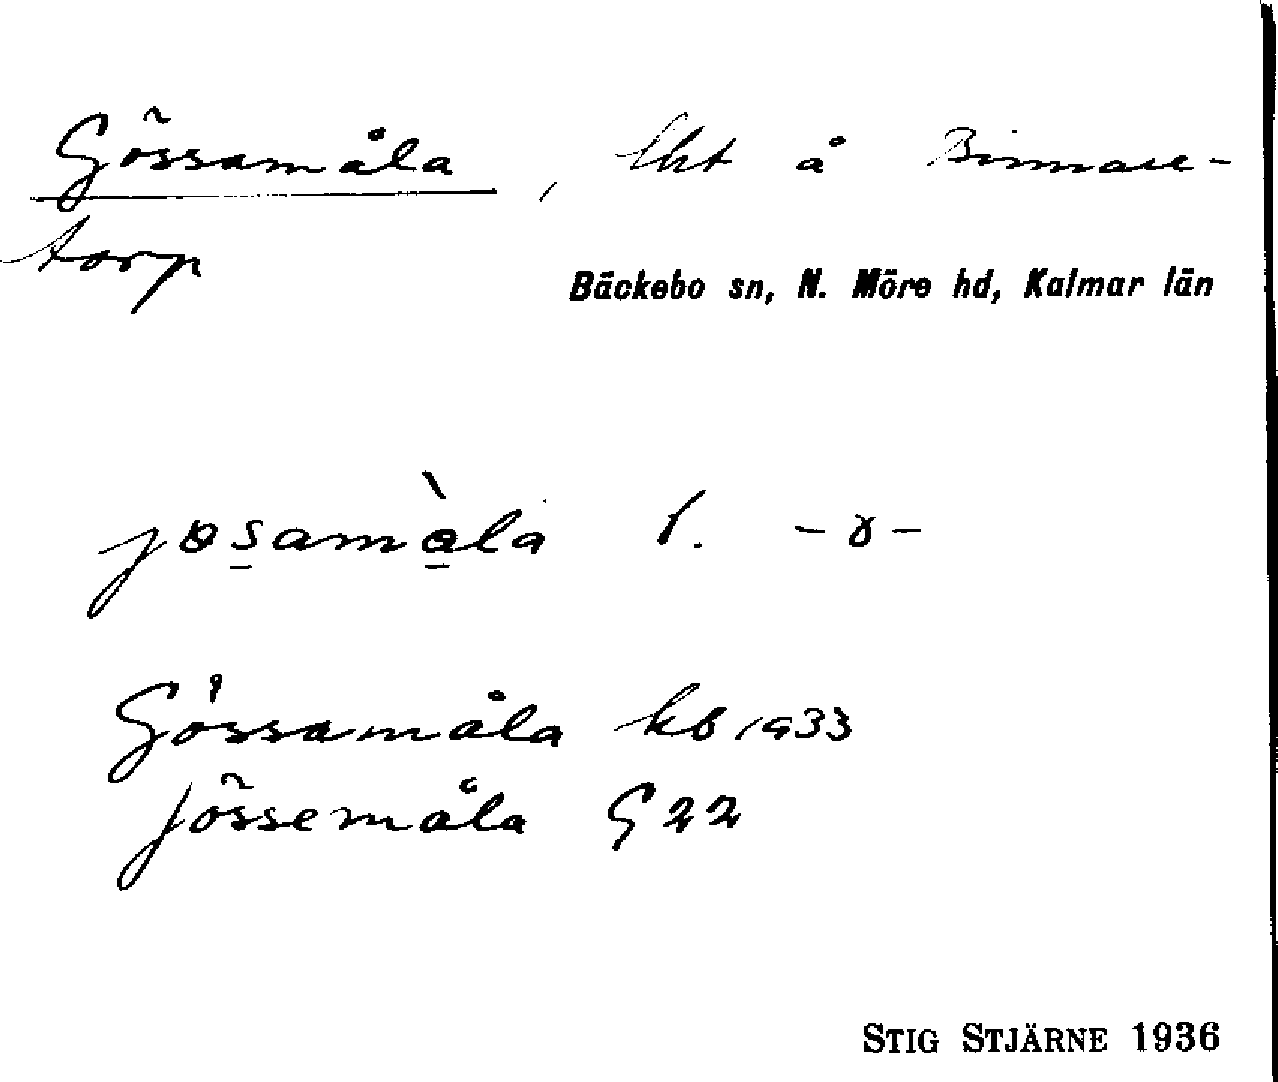 Gössamåla, lht å Binnare-
torp
Bäckebo sn, N. Möre hd, Kalmar län
jɵsamàla l. -ɤ-
Gössamåla kb 1933
Jössemåla G 22
STIG STJÄRNE 1936